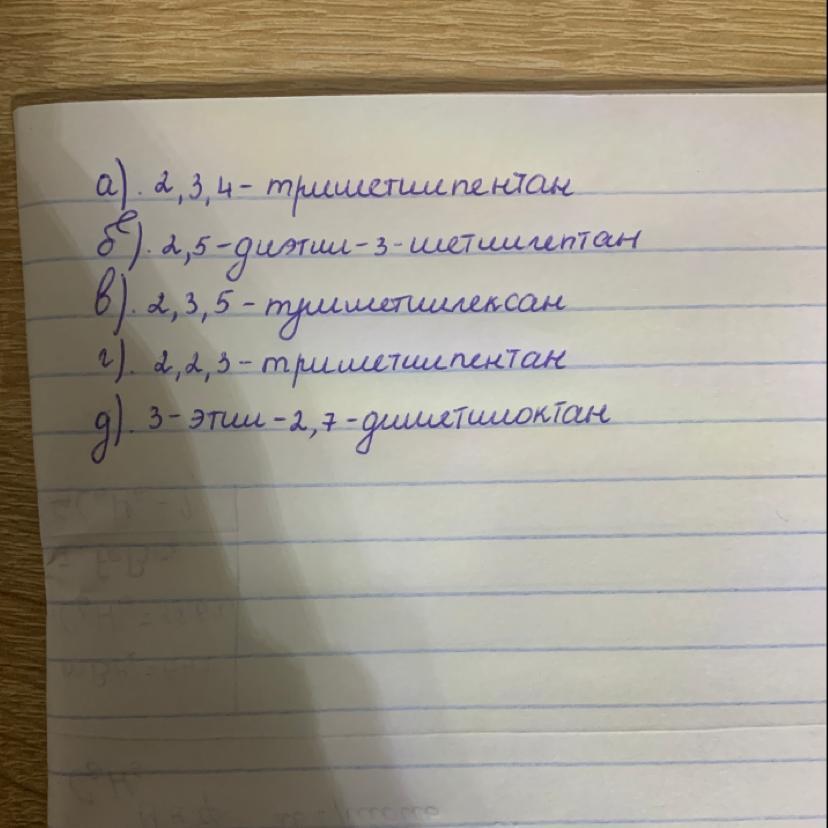 а). 2,3,4-триметилпентан
б). 2,5-диэтил-3-метилгептан
в). 2,3,5-триметилгексан
г). 2,2,3-триметилпентан
д). 3-этил-2,7-диметилоктан